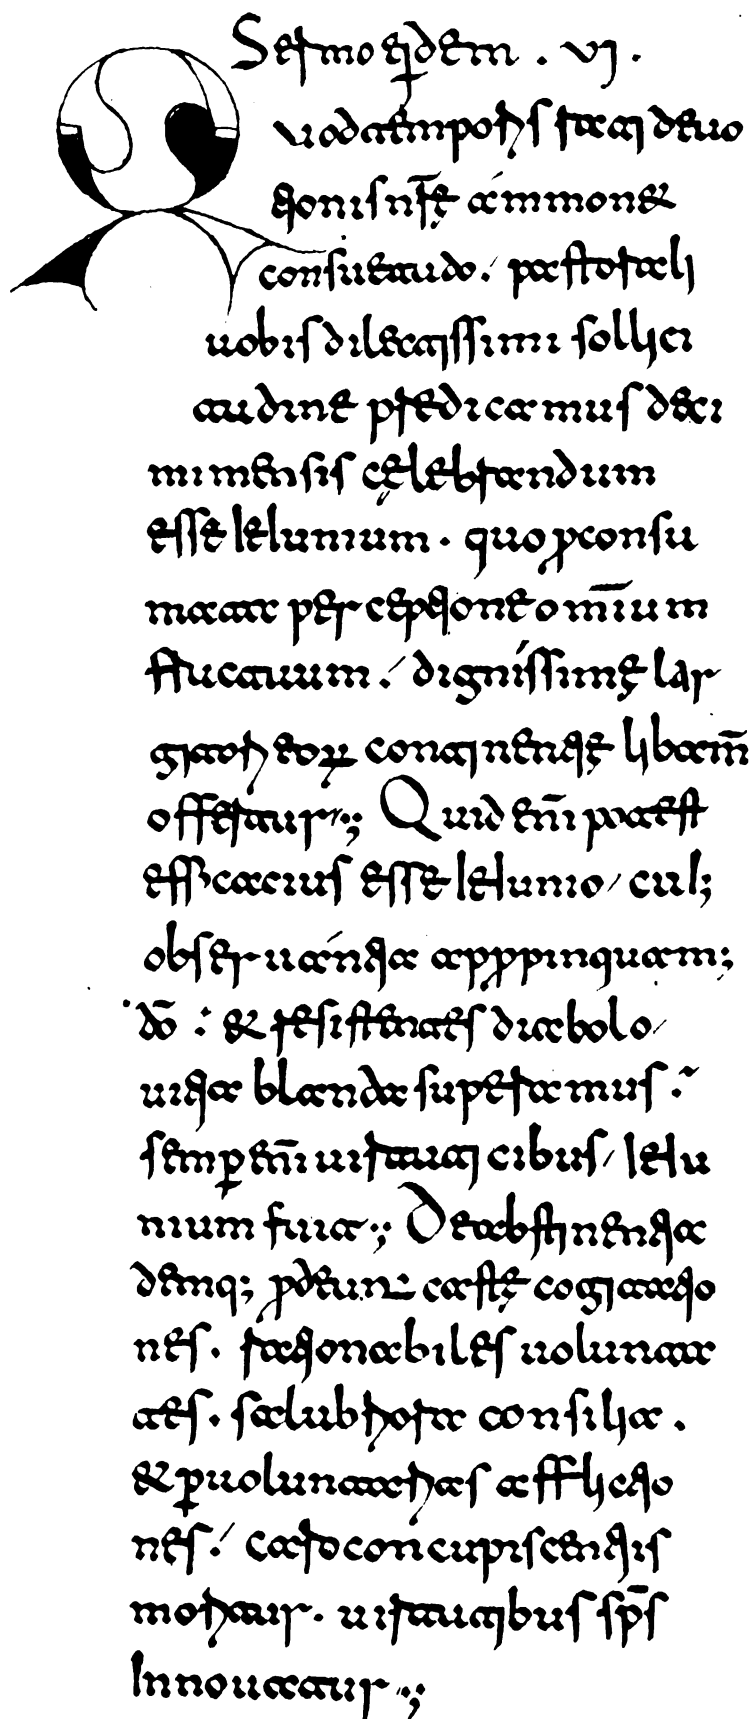 Sermo eidem . vi .
Quod temporis rati deuo
tionis nrę ammonet
consuetudo ./ pastorali
uobis dilectissimi sollici
tudine predicamus deci
mi mensis cęlebrandum
esse Ieiunium . quo pconsu
mata perceptione omīum
fructuum ./ dignissimę lar
gitori eoꝝ continentię libam̄
offertur ; Quid em̄ potest
efficacius esse Ieiunio / cui;
obseruantia appropinquam;
dō : & resistentes diabolo /
uitia blanda superamus :
semp em̄ uirtuti cibus / Ieiu
nium fuit ; De abstinentia
demq; pdeunt castę cogitatio
nes . rationabiles uolunta
tes . salubriora consilia .
& puoluntarias afflictio
nes ./ caro concupiscentiis
moritur . uirtutibus sp̄s
Innouatur ;